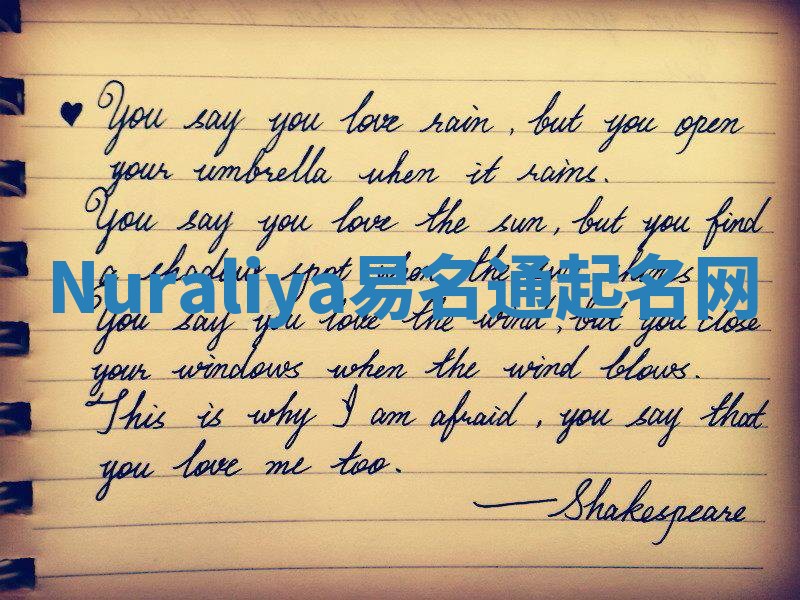 ♥ You say you love rain, but you open
your umbrella when it rains.
You say you love the sun, but you find
a shadow spot when the sun shines
Nuraliya易名通起名网
You say you love the wind, but you close
your windows when the wind blows.
This is why I am afraid, you say that
you love me too.
— Shakespeare